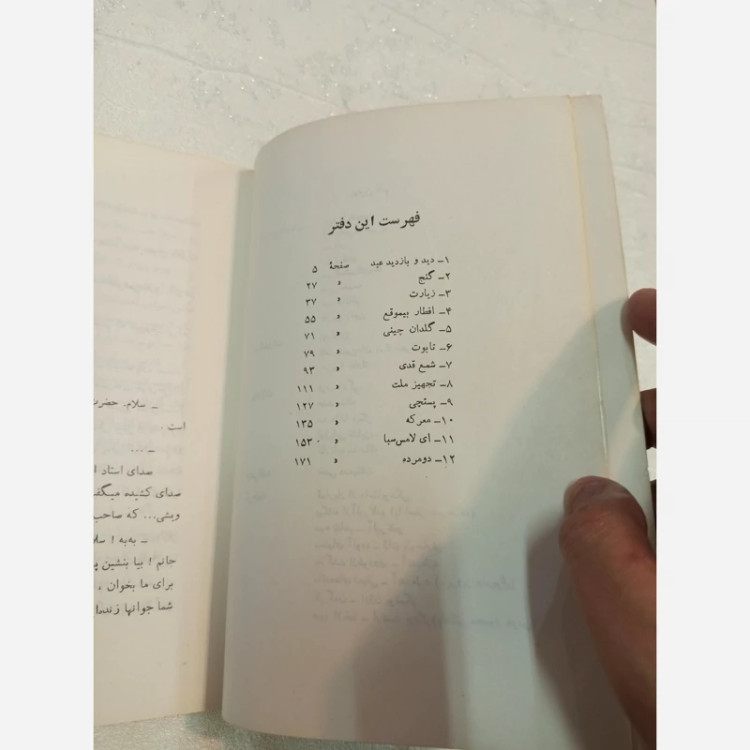 فهرست این دفتر
۱ـ دید و بازدید عید صفحهٔ ۵
۲ـ گنج » ۲۷
۳ـ زیارت » ۳۷
۴ـ افطار بیموقع » ۵۵
۵ـ گلدان چینی » ۷۱
۶ـ تابوت » ۷۹
۷ـ شمع قدی » ۹۳
۸ـ تجهیز ملت » ۱۱۱
۹ـ پستچی » ۱۲۷
۱۰ـ معرکه » ۱۳۵
۱۱ـ ای لامس‌سبا » ۱۵۳
۱۲ـ دومرده » ۱۷۱
ـ سلام. حضرت
است .
ـ ...
صدای استاد ا
صدای کشیده میگف
وبشی... که صاحب
ـ به‌به ! سلا
جانم ! بیا بنشین پ
برای ما بخوان .
شما جوانها زنده‌ا